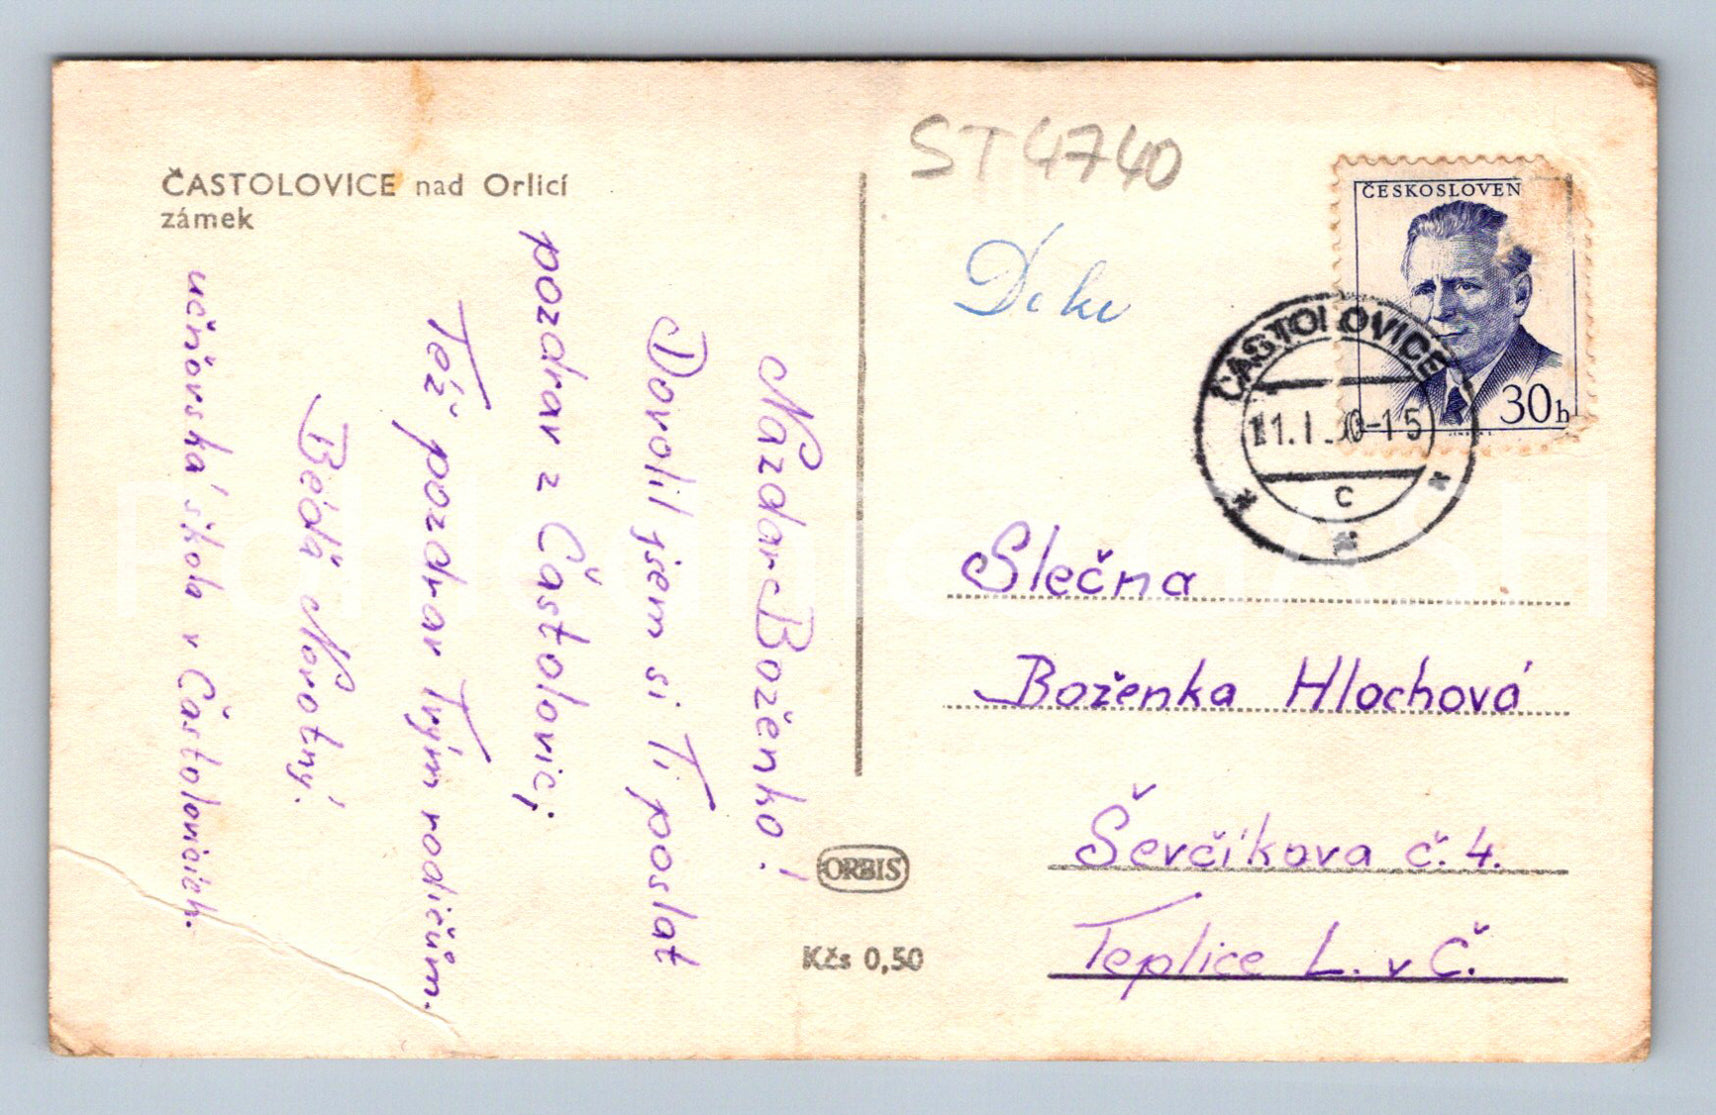 ČASTOLOVICE nad Orlicí
zámek
Nazdar Boženko!
Dovolil jsem si Ti poslat
pozdrav z Častolovic;
Též pozdrav Tvým rodičům.
Béďa Novotný.
učňovská škola v Častolovicích.
ST4740
ČESKOSLOVEN
30h
ČASTOLOVICE
11.I. 0-15
C
Slečna
Boženka Hlochová
Ševčíkova č. 4.
Teplice L. v Č.
ORBIS
Kčs 0,50